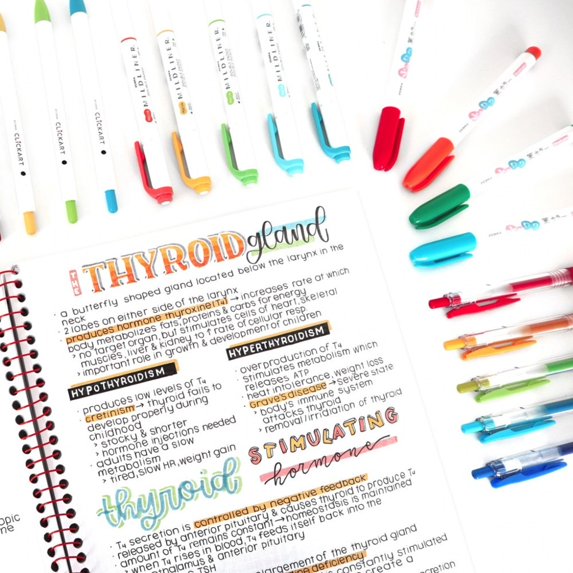 CLiCKART
CLiCKART
CLiCKART
MILDLINER
MILDLINER
MILDLINER
MILDLINER
MILDLINER
THE THYROID gland
· a butterfly shaped gland located below the larynx in the
neck
· 2 lobes on either side of the larynx
· produces hormone thyroxine(T4) → increases rate at which
body metabolizes fats, proteins & carbs for energy
> no target organ, but stimulates cells of heart, skeletal
muscles, liver & kidney to ↑ rate of cellular resp
> important role in growth & development of children
HYPOTHYROIDISM
· produces low levels of T4
· cretinism → thyroid fails to
develop properly during
childhood
> stocky & shorter
> hormone injections needed
· adults have a slow
metabolism
> tired, slow HR, weight gain
HYPERTHYROIDISM
· overproduction of T4
· stimulates metabolism which
releases ATP
· heat intolerance, weight loss
· Graves disease → severe state
> body's immune system
attacks thyroid
> removal/irradiation of thyroid
thyroid STIMULATING
hormone
· T4 secretion is controlled by negative feedback
· released by anterior pituitary & causes thyroid to produce T4
· amount of T4 remains constant → homeostasis is maintained
· when T4 rises in blood, T4 feeds itself back into the
hypothalamus & anterior pituitary
TSH
enlargement of the thyroid gland
deficiency
constantly stimulated
create a
opic
me